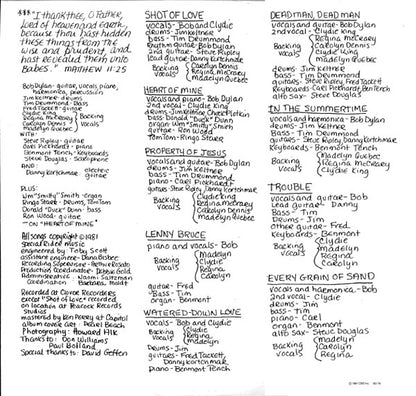 *** "I thank thee, O Father,
Lord of heaven and earth,
because thou hast hidden
these things from the
wise and prudent, and
hast revealed them unto
babes." MATTHEW 11:25
Bob Dylan - guitar, vocals, piano,
harmonica, percussion
Jim Keltner - drums
Tim Drummond - Bass
Fred Tackett - guitar
Clydie King
Regina McCreary
Carolyn Dennis
Madelyn Quebec
vocals
WITH:
Steve Ripley - guitar
Carl Pickhardt - piano
Benmont Tench - Keyboards
Steve Douglas - Saxophone
AND:
Danny Kortchmar - electric
guitar
PLUS:
Wm "Smitty" Smith - organ
Ringo Starr - Drums, Tom Tom
Donald "Duck" Dunn - bass
Ron Wood - guitar
ON "HEART OF MINE"
All songs copyright © 1981
Special Rider Music
engineered by Toby Scott
assistant engineer - Dana Bisbee
Production Coordinator - Debbie Gold
Recorded at Clover Recorders
except "Shot of Love" recorded
on location at Peacock Records
Studios
mastered by Ken Perry at Capitol
album cover art - Pearl Beach
Photography: Howard Alk
Thanks to: Don Williams
Paul Bolland
Special thanks to: David Geffen
SHOT OF LOVE
vocals - Bob and Clydie
drums - Jim Keltner
bass - Tim Drummond
Rhythm guitar - Bob Dylan
2nd guitar - Steve Ripley
lead guitar - Danny Kortchmar
Backing vocals
Carolyn Dennis
Regina McCreary
Madelyn Quebec
HEART OF MINE
vocals and piano - Bob Dylan
2nd vocal - Clydie King
drums - Jim Keltner Chuck Plotkin
bass - Donald "Duck" Dunn
organ - Wm "Smitty" Smith
guitar - Ron Wood
Tom Tom - Ringo Starr
PROPERTY OF JESUS
vocals and guitar - Bob Dylan
drums - Jim Keltner
bass - Tim Drummond
piano - Carl Pickhardt
guitars - Steve Ripley, Danny Kortchmar
Backing vocals
Clydie King
Regina McCreary
Carolyn Dennis
Madelyn Quebec
LENNY BRUCE
piano and vocals - Bob
Backing vocals
Madelyn
Clydie
Regina
Carolyn
guitar - Fred
Bass - Tim
drums - Jim
organ - Benmont
WATERED-DOWN LOVE
vocals - Bob and Clydie
Backing vocals
Clydie
Regina
Madelyn
drums - Jim
guitars - Fred Tackett,
Danny Kortchmar
piano - Benmont Tench
DEAD MAN, DEAD MAN
vocals and guitar - Bob Dylan
2nd vocal - Clydie King
Backing vocals
Regina McCreary
Carolyn Dennis
Clydie King
Madelyn Quebec
drums - Jim Keltner
bass - Tim Drummond
guitars - Steve Ripley, Fred Tackett
Keyboards - Carl Pickhardt, Ben Tench
alto sax - Steve Douglas
IN THE SUMMERTIME
vocals and harmonica - Bob Dylan
drums - Jim Keltner
Bass - Tim Drummond
guitars - Steve Ripley, Danny Kortchmar
Keyboards - Benmont Tench
Backing vocals
Madelyn Quebec
Regina McCreary
Clydie King
TROUBLE
vocals and guitar - Bob
Lead guitar - Danny
Bass - Tim
Drums - Jim
other guitar - Fred
Keyboards - Benmont
Backing vocals
Clydie
Madelyn
Regina
Carolyn
EVERY GRAIN OF SAND
vocals and harmonica - Bob
2nd vocal - Clydie
drums - Jim
bass - Tim
piano - Carl
organ - Benmont
alto sax - Steve Douglas
Backing vocals
Madelyn
Carolyn
Regina